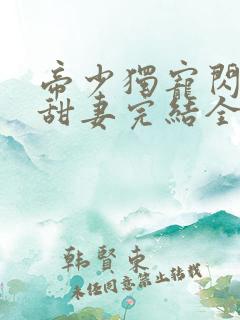 帝少獨寵閃
甜妻完結全
韩賢东
未任同意禁止转载